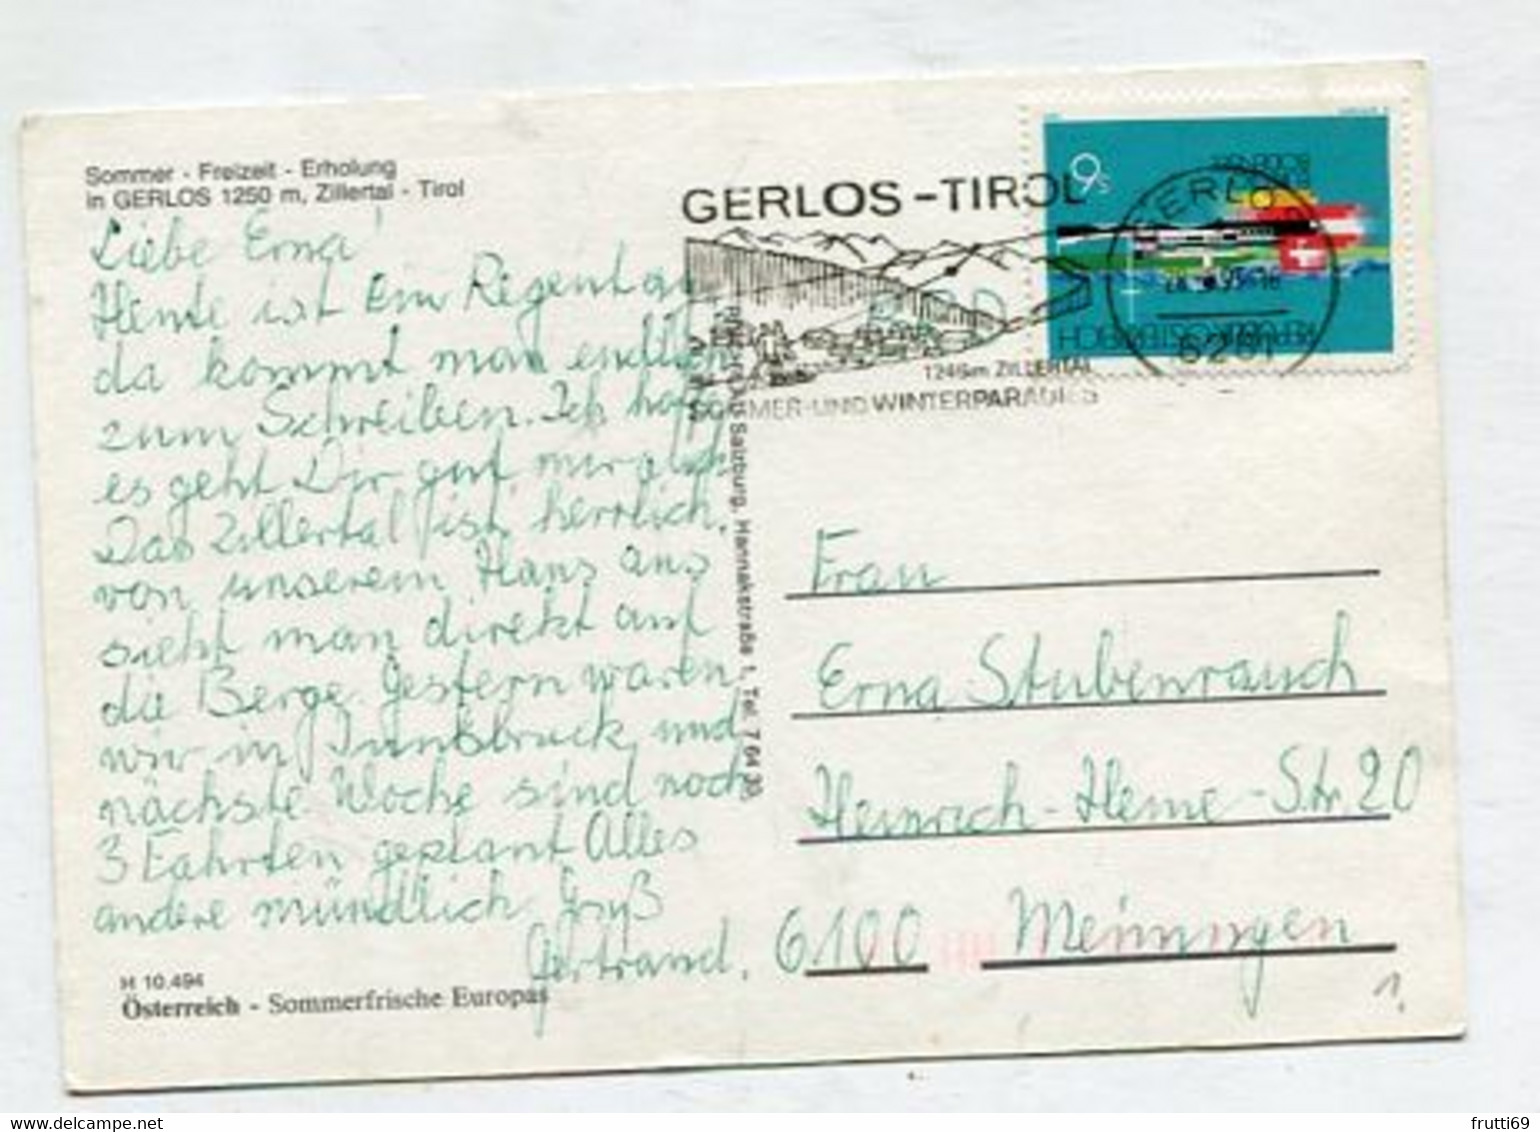 Sommer - Freizeit - Erholung
in GERLOS 1250 m, Zillertal - Tirol
Liebe Erna!
Heute ist ein Regentag
da kommt man endlich
zum Schreiben. Ich hoffe
es geht Dir gut, mir auch
Das Zillertal ist herrlich,
von unserem Haus aus
sieht man direkt auf
die Berge. Gestern waren
wir in Innsbruck und
nächste Woche sind noch
3 Fahrten geplant Alles
andere mündlich Gruß
Gertraud.
H 10.494
Österreich - Sommerfrische Europas
Salzburg, Hannakstraße 1, Tel. 7 64 39
GERLOS-TIROL
1246m ZILLERTAL
SOMMER-UND WINTERPARADIES
9s
GERLOS
6281
REPUBLIK ÖSTERREICH
Frau
Erna Stubenrauch
Heinrich-Heine-Str. 20
6100 Meiningen
1.
frutti69